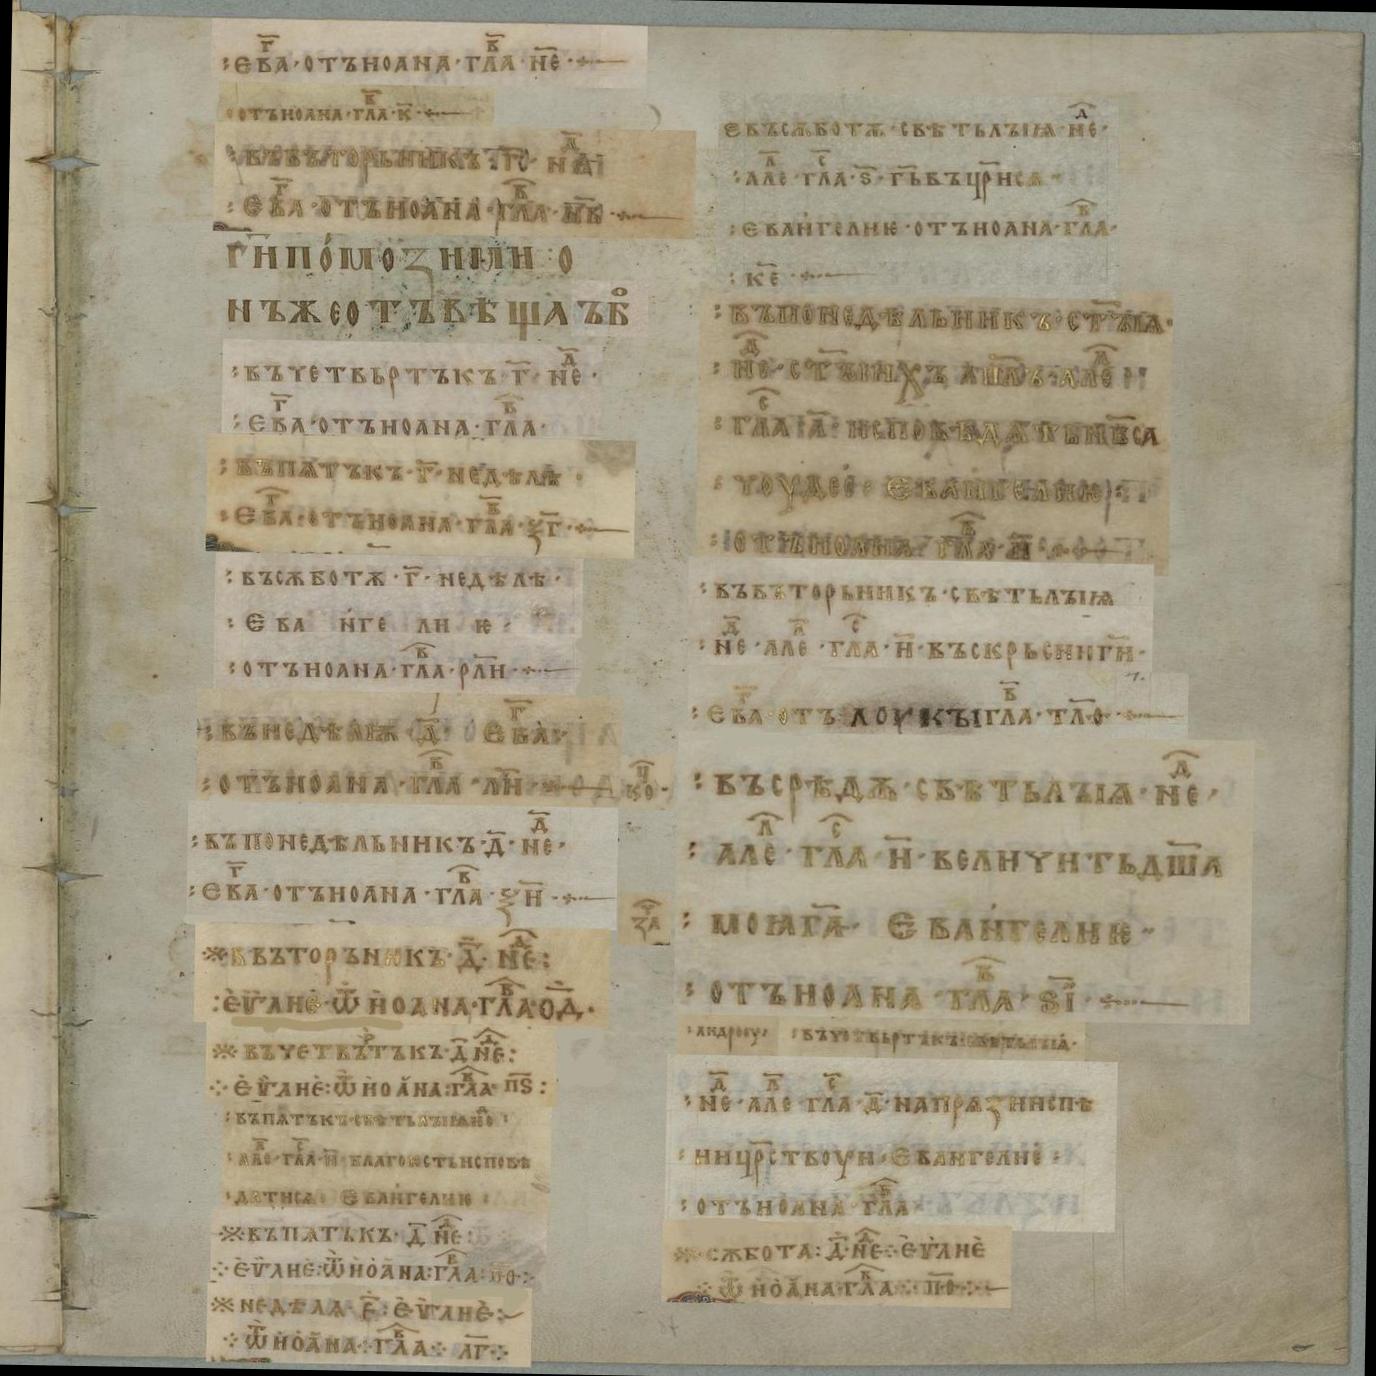 :Ев҃а·отъиоана·гл҃а·не҃·
отъиоана·гл҃а·к҃·
:въвъторьникъ·г҃· н҃д
:Ев҃а·отъиоана·гл҃а·м҃в·
г҃ипомозими о
нъжеотъвѣщаъб
:въчетвьртъкъ·г҃·не҃·
:Ев҃а·отъиоана·гл҃а·
:въпѧтъкъ·г҃·недѣлѣ·
:Ев҃а·отъиоана·гл҃а·ѯг҃·
:въсѫботѫ·г҃·недѣлѣ·
:Еваńгелию·
:отъиоана·гл҃а·рл҃и·
:въндѣлѭ·д҃· Ев҃а·
:отъиоана·гл҃а·л҃и·
:въпонедѣльникъ·д҃·не҃·
:Ев҃а·отъиоана·гл҃а·ѯи҃·
※въвъторъникъ·д҃·не҃:
:еѵ҃лие·ѿиоана·гл҃а·од҃·
※въчетвъ҃тъкъ·д҃не҃:
·:·еѵ҃лие:ѿиоана:гл҃а·пѕ҃:
:въпѧтъкъ·свѣтьлыѩн҃е:
:але·гл҃а·и҃·благоѥстьисповѣ
:датисѧ· Еваńгелию:
※въпѧтъкъ·д҃ не҃:
·:·еѵ҃лие:ѿиоана:гл҃а·по҃·:·
※недѣлѧ е҃:еѵ҃лие:
·:·ѿиоана·:·гл҃а·:·лг҃·:·
Евъсѫботѫ·свѣтьлыѩ·не҃·
:але·гл҃а·ѕ҃·г҃ьвъцр҃исѧ
:еваńгелию·отъиоана·гл҃а·
:ке҃·
:въпонедѣльникъ·ст҃ыѩ·
:не҃·ст҃ыихъ ап҃лъ·але҃
:гл҃а·а҃·исповѣдѧтьнб҃са
:чоудес· Еваńгелию:
:отъиоана·гл҃а·и҃·
:въвъторьникъ·свѣтьлыѩ
:не҃·але·гл҃а·и҃·въскрьсниги҃·
:Ев҃а·отъ лоукыгл҃а·тл҃о·
:въсрѣдѫ·свѣтьлыѩ·не҃·
:але·гл҃а·и҃·величитьдш҃а
:моѩг҃а· Еваńгелию·
:отъиоана·гл҃а·ѕі҃·
:въчетвьртъкъсвѣтьлыѩ·
:не҃·але·гл҃а·д҃·напрѧзниспѣ
:ницр҃ствоуи·Еваńгелие:
:отъиоана·гл҃а·
※сѫбота:д҃·не҃·:·еѵ҃лие
·:·ѿиоана·гл҃а·:·по҃·:·